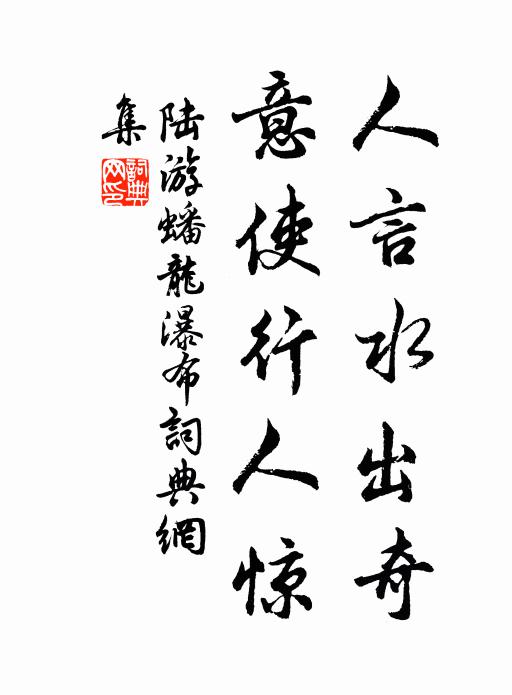 人言水出奇
意使行人惊
陆游蟠龍瀑布詞典網
集
詞典
网印